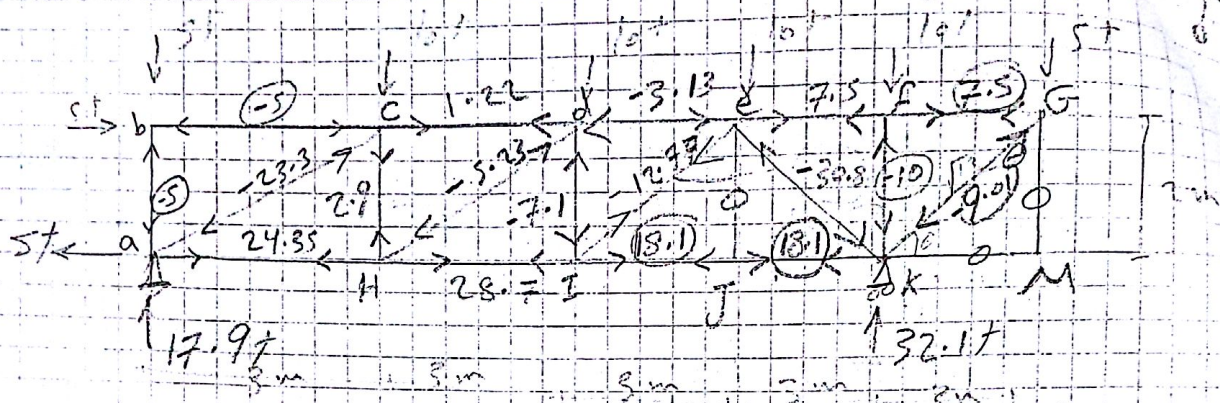 5t 10t 10t 10t 10t 5t
5t b -5 C 1.22 d -3.13 e 7.5 f 7.5 G
-23.3 2.9 -5.23 -7.1 12.77 0 -30.8 -10 -9.01 0 2m
-5
5t a 24.35 18.1 18.1 0
H 28.7 I J K M
17.9t 32.1t
3m 3m 3m 3m 2m